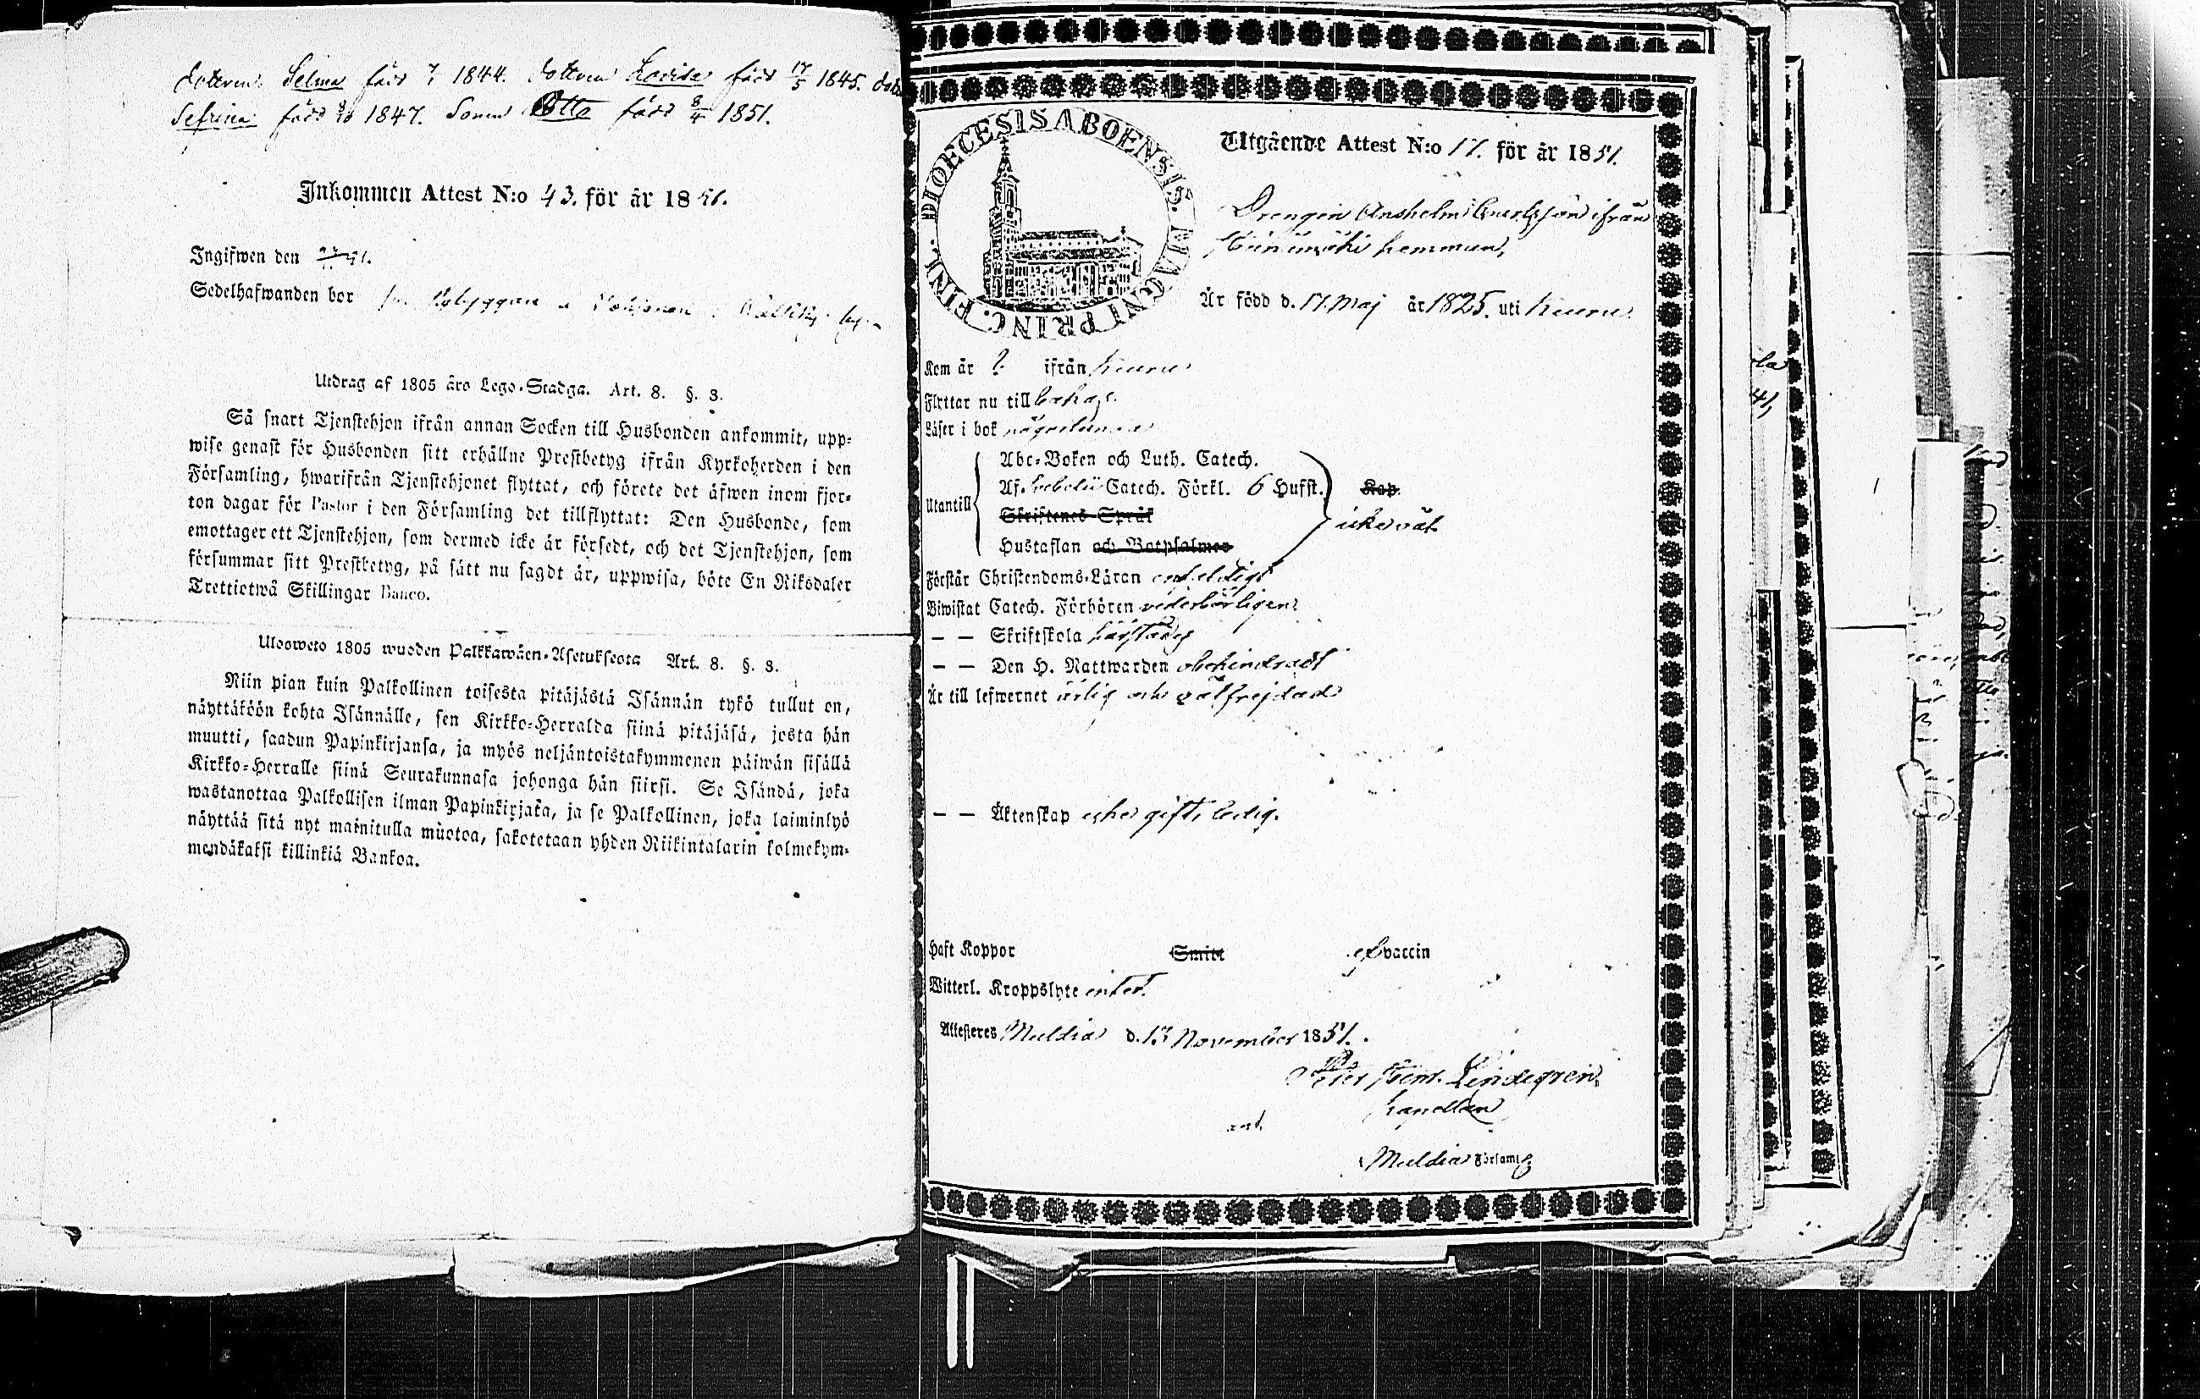 dotteren Selma född 1844. dotteren Lovisa född 17/5 1845.
Sefrina född 1847. Sonen Otto född 8/4 1851.
Inkommen Attest N:o 43. för år 1851.
Ingifwen den
Sedelhafwanden bor
Utdrag af 1805 års Lego-Stadga. Art. 8. §. 3.
Så snart Tjenstehjon ifrån annan Socken till Husbonden ankommit, upp-
wise genast för Husbonden sitt erhållne Prestbetyg ifrån Kyrkoherden i den
Församling, hwarifrån Tjenstehjonet flyttat, och förete det äfwen inom fjor-
ton dagar för Pastor i den Församling det tillflyttat: Den Husbonde, som
emottager ett Tjenstehjon, som dermed icke är försedt, och det Tjenstehjon, som
försummar sitt Prestbetyg, på sätt nu sagdt är, uppwisa, böte En Riksdaler
Trettiotwå Skillingar Banco.
Uloosweto 1805 wuoden Palkkawäen-Asetuksesta Art. 8. §. 3.
Niin pian kuin Palkollinen toisesta pitäjästä Isännän tykö tullut on,
näyttäköön kohta Isännälle, sen Kirkko-Herralda siinä pitäjäsä, josta hän
muutti, saadun Papinkirjansa, ja myös neljäntoistakymmenen päiwän sisällä
Kirkko-Herralle siinä Seurakunnasa johonga hän siirsi. Se Isändä, joka
wastanottaa Palkollisen ilman Papinkirjata, ja se Palkollinen, joka laiminlyö
näyttää sitä nyt mainitulla muotoa, sakotetaan yhden Riikintalarin kolmekym-
mendäkaksi killinkiä Bankoa.
DIOECESIS ABOENSIS. MAGNI PRINC. FINL.
Utgående Attest N:o 17. för år 1851.
Drengen Anshelm ifrån
hemman,
Är född d. 17. Maj år 1825. uti Keuru
Kom år ? ifrån Keuru
Flyttar nu till
Läser i bok någorlunda
Abc-Boken och Luth. Catech.
Af. Catech. Förkl. 6 Hufst. Kap.
Utantill
Skriftenes Språk
icke väl
Hustaflan och Botpsalmer
Förstår Christendoms-Läran enfeldigt
Biwistat Catech. Förhören vederbörligen
— — Skriftskola härstädes
— — Den H. Nattwarden obehindradt
Är till lefwernet ärlig och välfrejdad
— — Äktenskap icke gift, ledig.
Haft Koppor Smitt af vaccin
Witterl. Kroppslyte intet.
Attesteras Muldia d. 13 November 1851.
Lindegren
Capellan
Muldia Församl.